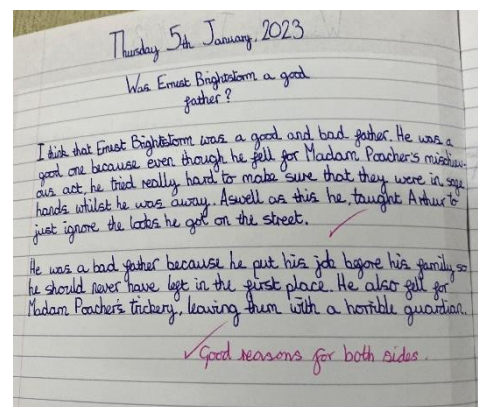 Thursday 5th January, 2023
Was Ernest Brightstorm a good
father?
I think that Ernest Brightstorm was a good and bad father. He was a
good one because even though he fell for Madam Poacher's mischiev-
ous act, he tried really hard to make sure that they were in safe
hands whilst he was away. Aswell as this he, taught Arthur to
just ignore the looks he got on the street.
He was a bad father because he put his job before his family, so
he should never have left in the first place. He also fell for
Madam Poacher's trickery, leaving them with a horrible guardian.
Good reasons for both sides.